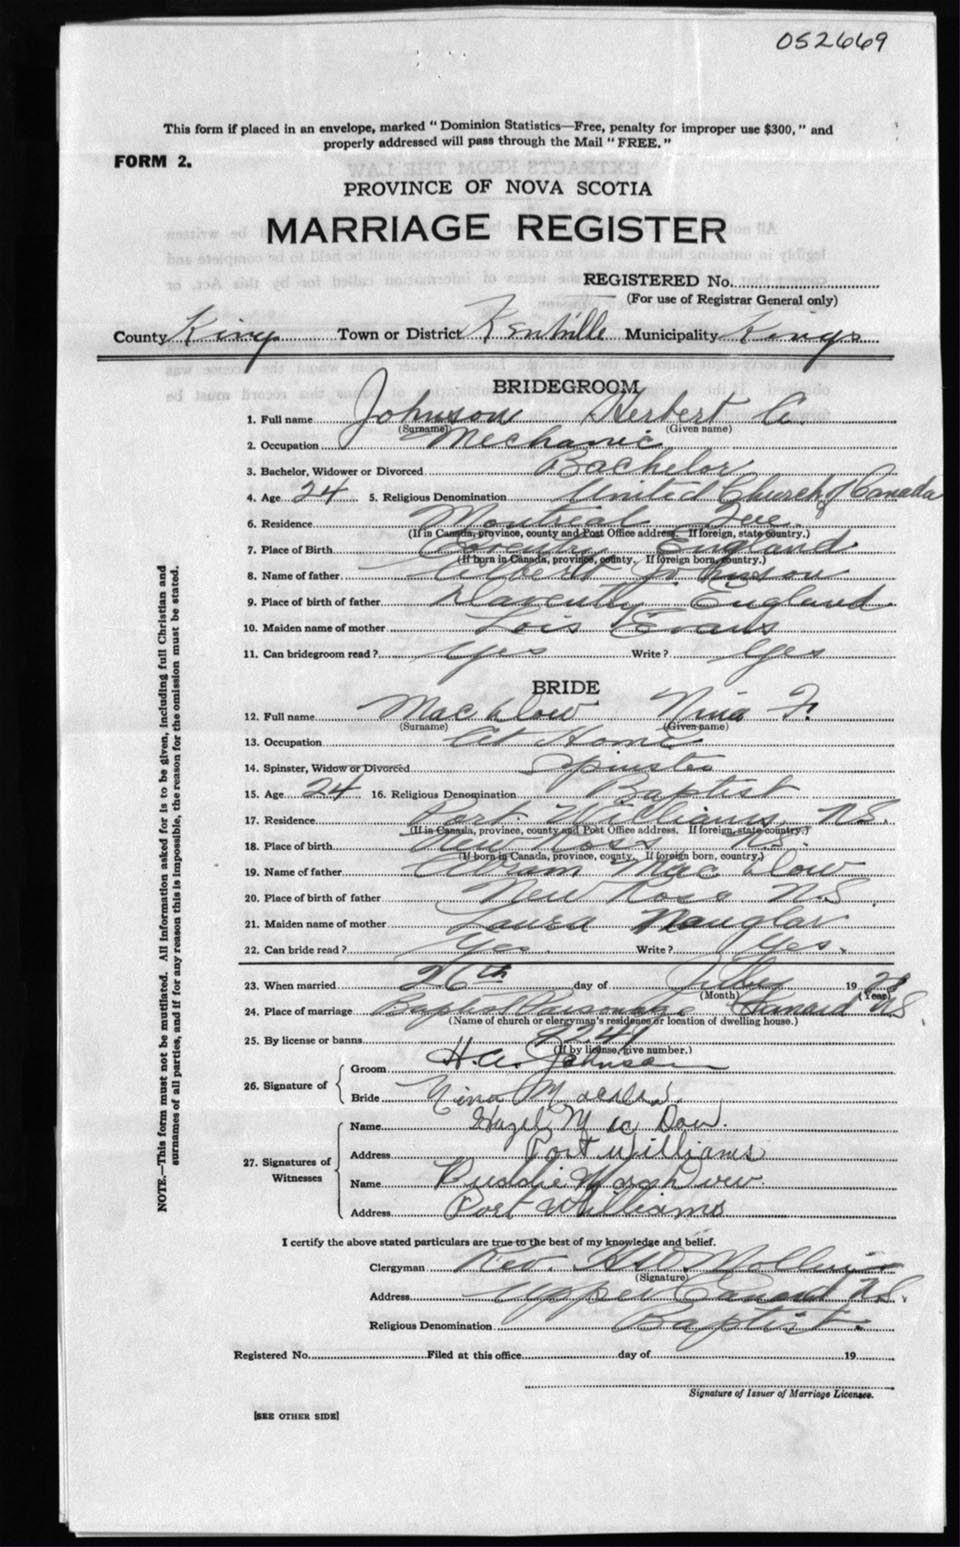 052669
This form if placed in an envelope, marked " Dominion Statistics—Free, penalty for improper use $300, " and
properly addressed will pass through the Mail " FREE. "
FORM 2.
PROVINCE OF NOVA SCOTIA
MARRIAGE REGISTER
REGISTERED No.
(For use of Registrar General only)
County Kings Town or District Kentville Municipality Kings
BRIDEGROOM
1. Full name Johnson Herbert A.
(Surname) (Given name)
2. Occupation Mechanic
3. Bachelor, Widower or Divorced Bachelor
4. Age 24 5. Religious Denomination United Church of Canada
6. Residence Montreal Que.
(If in Canada, province, county and Post Office address. If foreign, state country.)
7. Place of Birth England
(If born in Canada, province, county. If foreign born, country.)
8. Name of father Albert Johnson
9. Place of birth of father Daventry England
10. Maiden name of mother Lois Evans
11. Can bridegroom read ? Yes Write ? Yes
BRIDE
12. Full name Mac Dow Nina F.
(Surname) (Given name)
13. Occupation At Home
14. Spinster, Widow or Divorced Spinster
15. Age 24 16. Religious Denomination Baptist
17. Residence Port Williams, N.S.
(If in Canada, province, county and Post Office address. If foreign, state country.)
18. Place of birth New Ross N.S.
(If born in Canada, province, county. If foreign born, country.)
19. Name of father Mac Dow
20. Place of birth of father New Ross N.S.
21. Maiden name of mother Laura
22. Can bride read ? Yes Write ? Yes.
23. When married 26th day of 19
(Month) (Year)
24. Place of marriage Baptist Parsonage Canard N.S.
(Name of church or clergyman's residence or location of dwelling house.)
25. By license or banns
(If by license, give number.)
26. Signature of
Groom H. A. Johnson
Bride Nina
27. Signatures of Witnesses
Name Hazel Mac Dow.
Address Port Williams
Name
Address Port Williams
I certify the above stated particulars are true to the best of my knowledge and belief.
Clergyman Rev.
(Signature)
Address Upper Canard N.S.
Religious Denomination Baptist.
Registered No. Filed at this office day of 19
Signature of Issuer of Marriage Licenses.
[SEE OTHER SIDE]
NOTE.—This form must not be mutilated. All information asked for is to be given, including full Christian and
surnames of all parties, and if for any reason this is impossible, the reason for the omission must be stated.